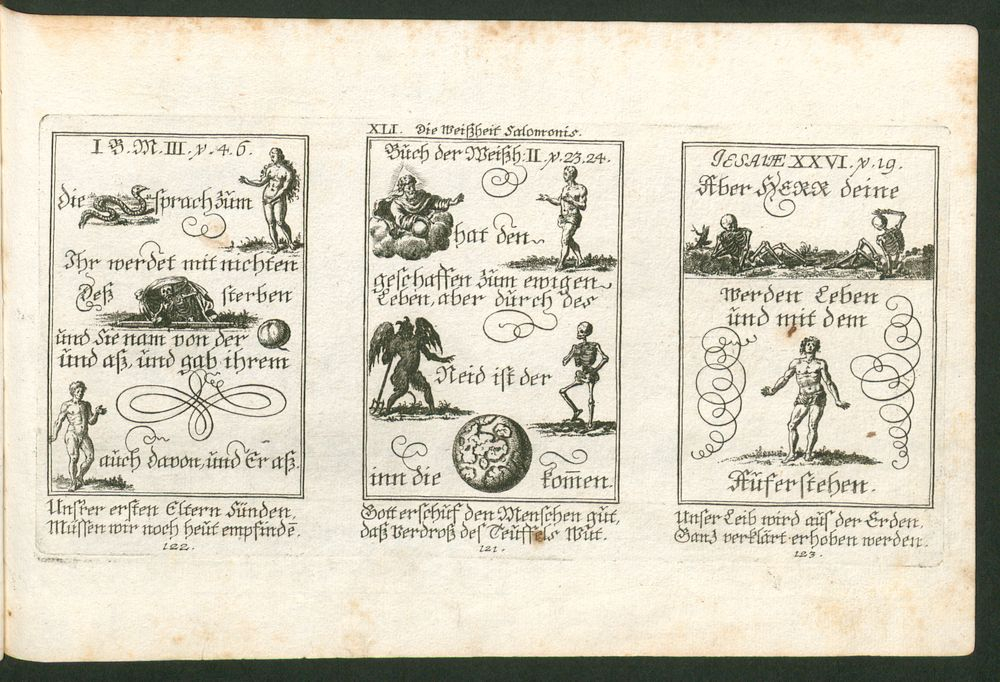 I B. M. III. v. 4. 6.
Die sprach zum
Ihr werdet mit nichten
Deß sterben
und Sie nam von der
und aß, und gab ihrem
auch davon, und Er aß.
Unsrer ersten Eltern Sünden.
Müssen wir noch heüt empfindē.
122.
XLI. Die Weißheit Salomonis.
Büch der Weißh. II. v. 23. 24.
hat den
geschaffen zum ewigen
Leben, aber dürch des
Neid ist der
inn die kom̄en.
Gott erschüf den Menschen güt,
daß verdroß des Teuffels Wüt.
121.
JESAIÆ XXVI. v. 19.
Aber HERR deine
werden Leben
und mit dem
Aüferstehen.
Unser Leib wird aus der Erden.
Ganz verklärt erhoben werden.
123.